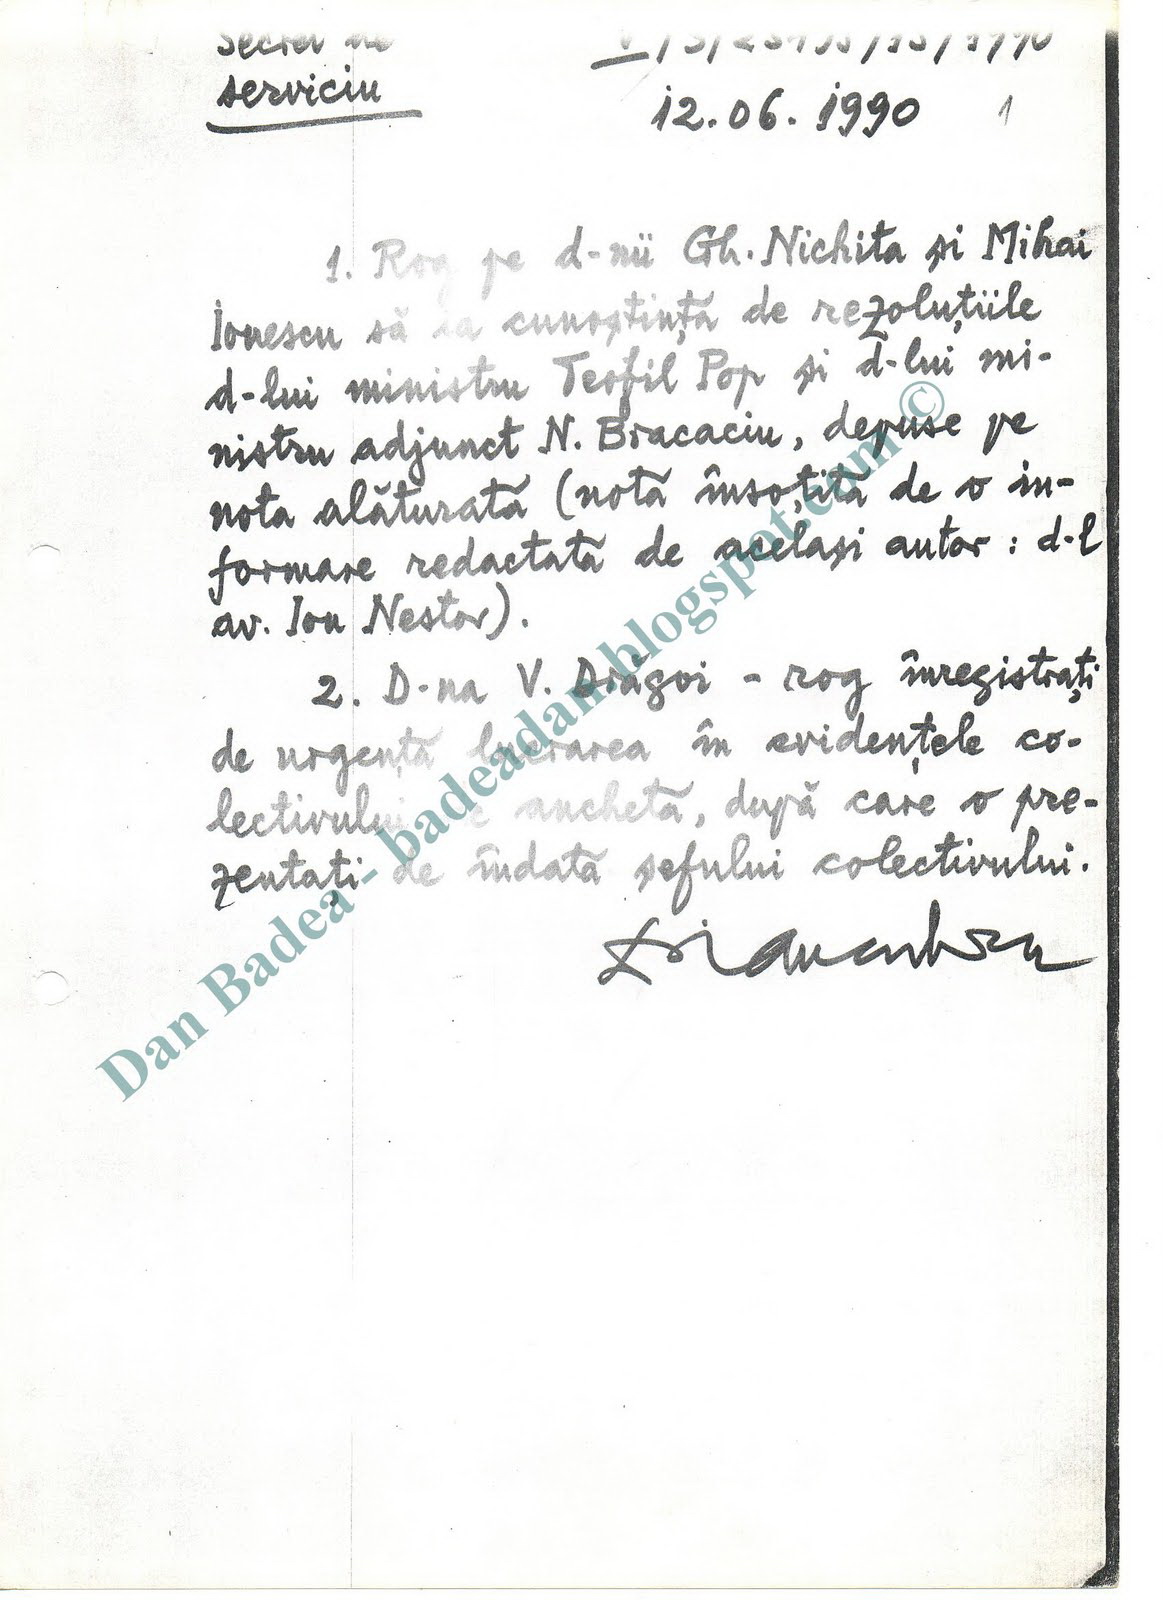 Secret de
serviciu
12.06.1990 1
1. Rog pe d-nii Gh. Nichita și Mihai
Ionescu să ia cunoștință de rezoluțiile
d-lui ministru Teofil Pop și d-lui mi-
nistru adjunct N. Bracaciu, depuse pe
nota alăturată (notă însoțită de o in-
formare redactată de același autor : d-l
av. Ion Nestor).
2. D-na V. Drăgoi - rog înregistrați
de urgență lucrarea în evidențele co-
lectivului de anchetă, după care o pre-
zentați de îndată șefului colectivului.
Dan Badea - badeadan.blogspot.com ©